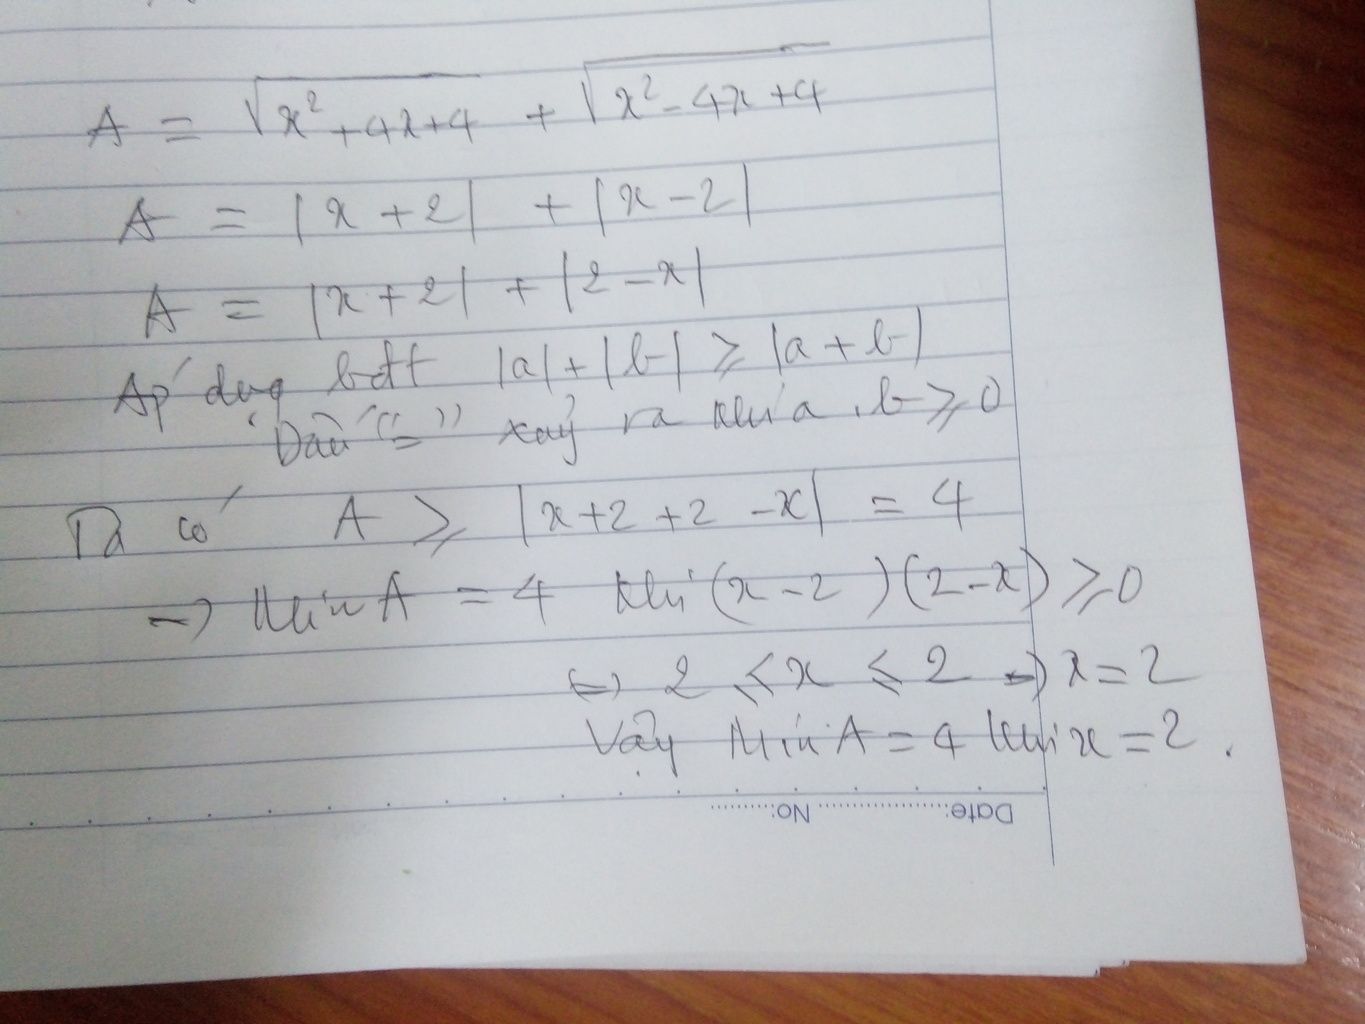 A = √x² + 4x + 4 + √x² - 4x + 4
A = |x + 2| + |x - 2|
A = |x + 2| + |2 - x|
Áp dụng bđt |a| + |b| ≥ |a + b|
"Dấu "=" xảy ra khi a.b ≥ 0
Ta có A ≥ |x + 2 + 2 - x| = 4
=> Min A = 4 khi (x - 2)(2 - x) ≥ 0
<=> 2 ≤ x ≤ 2 => x = 2
Vậy Min A = 4 khi x = 2.
Date: No: